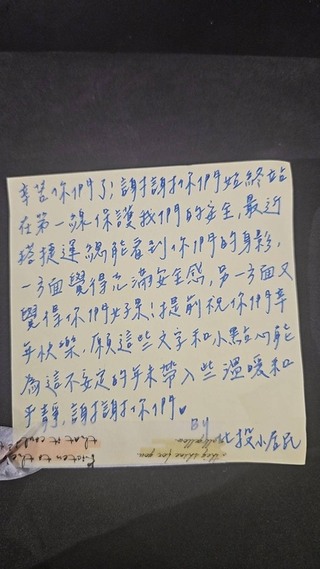 辛苦你們了!謝謝你們始終站
在第一線保護我們的安全,最近
搭捷運總能看到你們的身影,
一方面覺得充滿安全感,另一方面又
覺得你們好累!提前祝你們幸
年快樂,願這些文字和小點心能
為這不安定的年末帶入些溫暖和
平靜,謝謝你們。
北投小居民
that it could
Listen to the
they shine for you